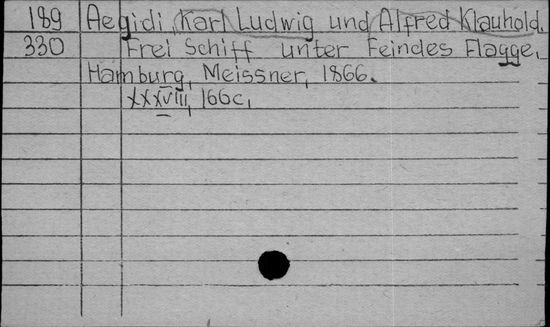 189 Aegidi, Karl Ludwig und Alfred Klauhold.
330 Frei Schiff unter Feindes Flagge.
Hamburg, Meissner, 1866.
XXXVIII, 166 c.